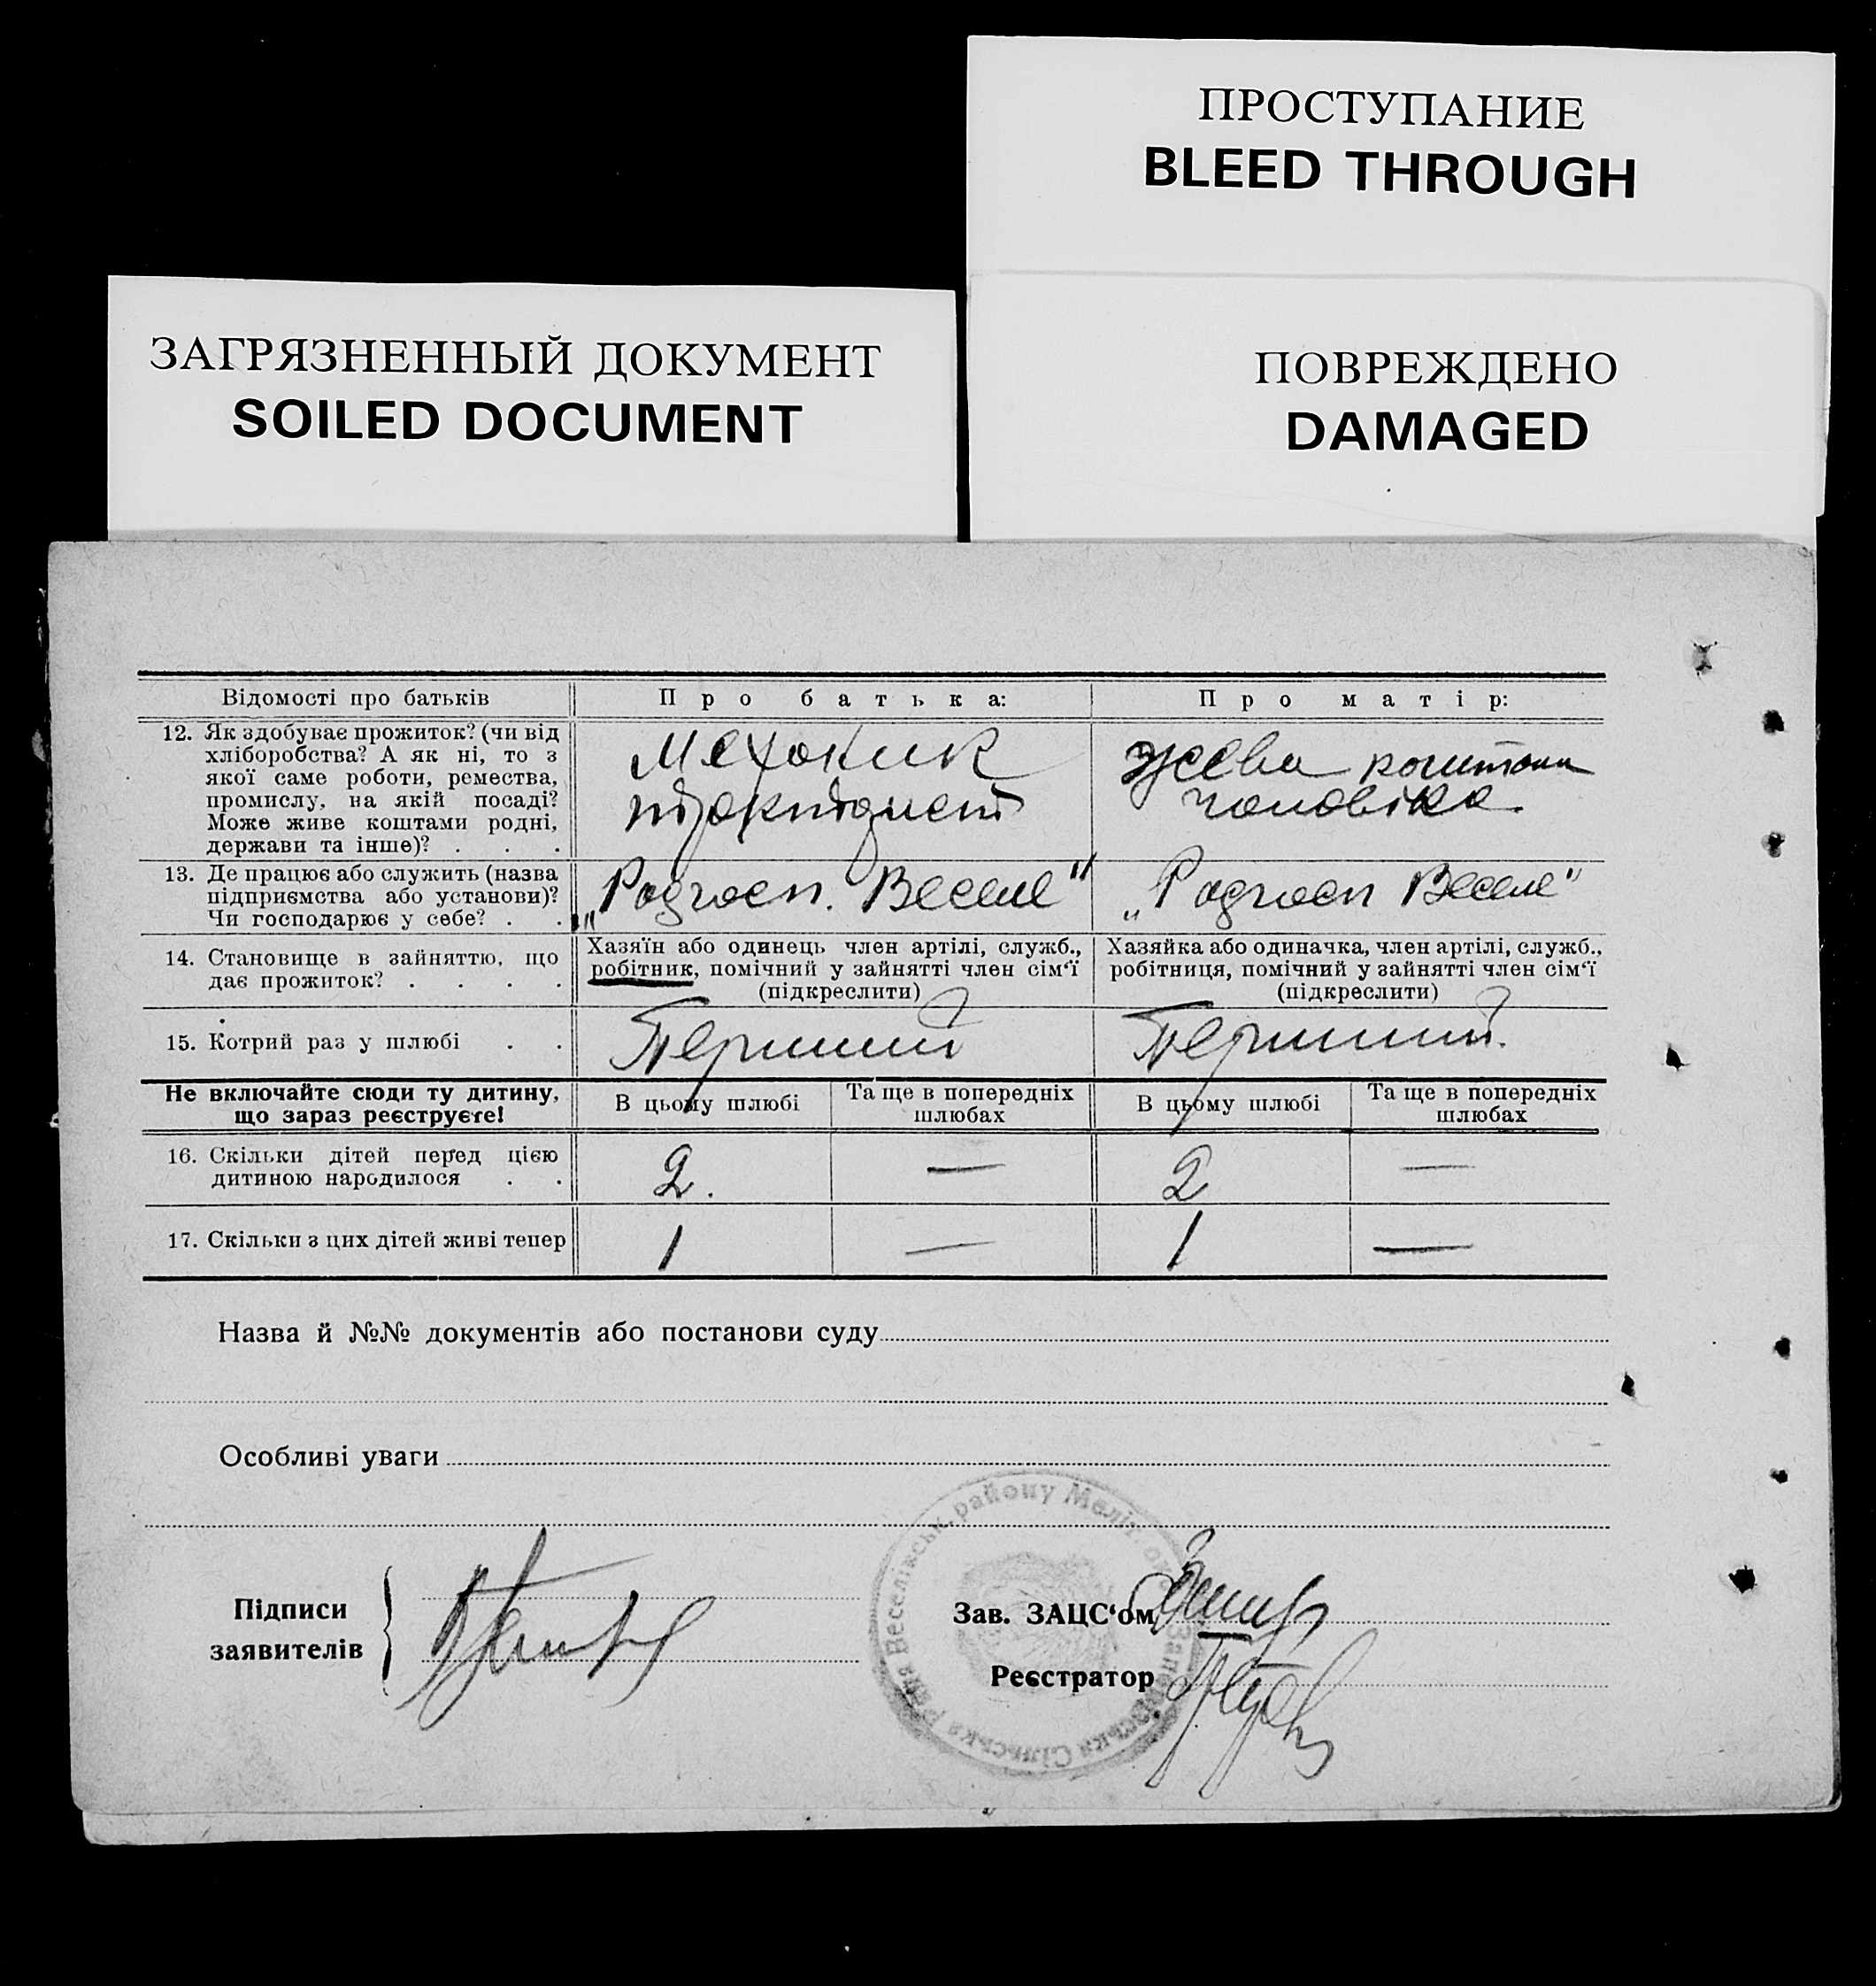 ПРОСТУПАНИЕ
BLEED THROUGH
ЗАГРЯЗНЕННЫЙ ДОКУМЕНТ
SOILED DOCUMENT
ПОВРЕЖДЕНО
DAMAGED
Відомості про батьків
Про батька:
Про матір:
12. Як здобуває прожиток? (чи від
хліборобства? А як ні, то з
якої саме роботи, ремества,
промислу, на якій посаді?
Може живе коштами родні,
держави та інше)? . . .
Механик
живе коштами
чоловіка
13. Де працює або служить (назва
підприємства або установи)?
Чи господарює у себе? . .
„Радгосп. Веселе"
„Радгосп Веселе"
14. Становище в зайняттю, що
дає прожиток? . . . .
Хазяїн або одинець член артілі, служб.,
робітник, помічний у зайнятті член сім'ї
(підкреслити)
Хазяйка або одиначка, член артілі, служб.,
робітниця, помічний у зайнятті член сім'ї
(підкреслити)
15. Котрий раз у шлюбі . .
Перший
Перший.
Не включайте сюди ту дитину,
що зараз реєструєте!
В цьому шлюбі
Та ще в попередніх
шлюбах
В цьому шлюбі
Та ще в попередніх
шлюбах
16. Скільки дітей перед цією
дитиною народилося . .
2.
—
2
—
17. Скільки з цих дітей живі тепер
1
—
1
—
Назва й №№ документів або постанови суду
Особливі уваги
Підписи
заявителів
Зав. ЗАЦС'ом
Реєстратор
Веселівськ. району Меліт.
Сільська Рада